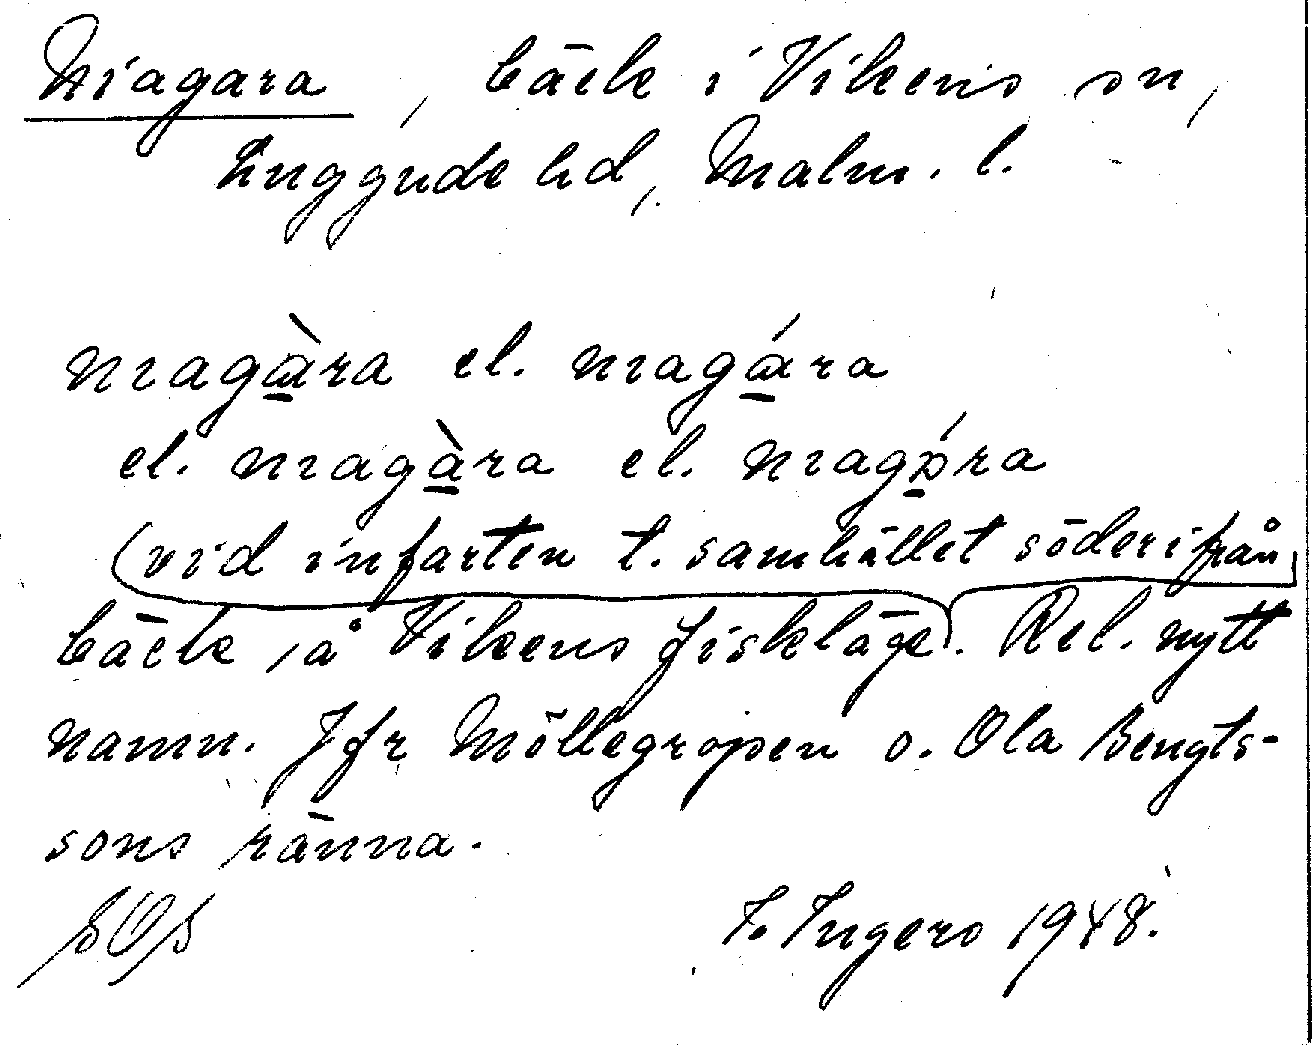 Niagara, bäck i Vikens sn,
Luggude hd, Malm. l.
niagàra el. niagára
el. niagàra el. niagóra
(vid infarten t. samhället söderifrån)
bäck i å Vikens fiskläge. Rel. nytt
namn. Jfr Möllegropen o. Ola Bengts-
sons ränna.
I. Ingers 1948.